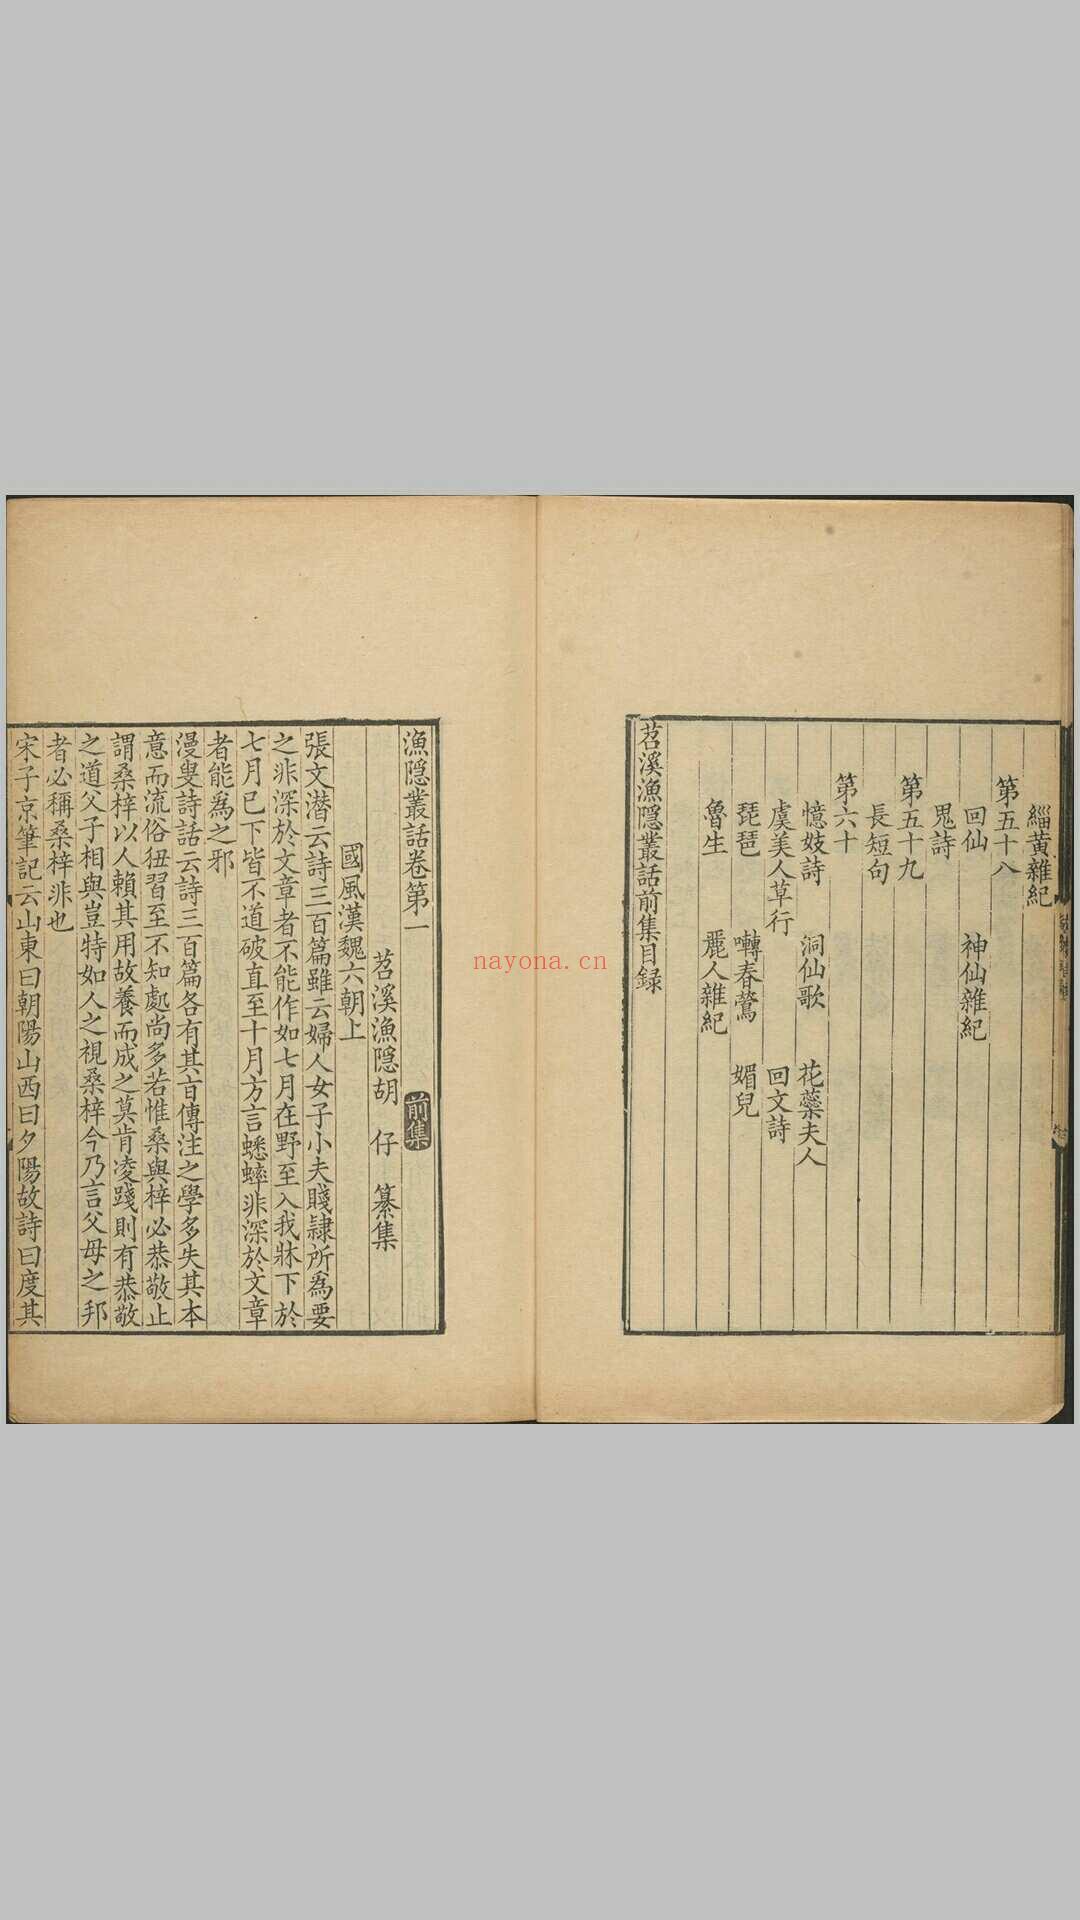 緇黄雜紀
第五十八
回仙 神仙雜紀
鬼詩
第五十九
長短句
第六十
憶妓詩 洞仙歌 花蘂夫人
虞美人草行 回文詩
琵琶 囀春鶯 媚兒
魯生 麗人雜紀
苕溪漁隠叢話前集目録
漁隠叢話卷第一 前集
苕溪漁隠胡 仔 纂集
國風漢魏六朝上
張文潛云詩三百篇雖云婦人女子小夫賤隷所爲要
之非深於文章者不能作如七月在野至入我牀下於
七月已下皆不道破直至十月方言蟋蟀非深於文章
者能爲之邪
漫叟詩話云詩三百篇各有其旨傳注之學多失其本
意而流俗狃習至不知處尚多若惟桑與梓必恭敬止
謂桑梓以人賴其用故養而成之莫肯凌踐則有恭敬
之道父子相與豈特如人之視桑梓今乃言父母之邦
者必稱桑梓非也
宋子京筆記云山東曰朝陽山西曰夕陽故詩曰度其
nayona.cn